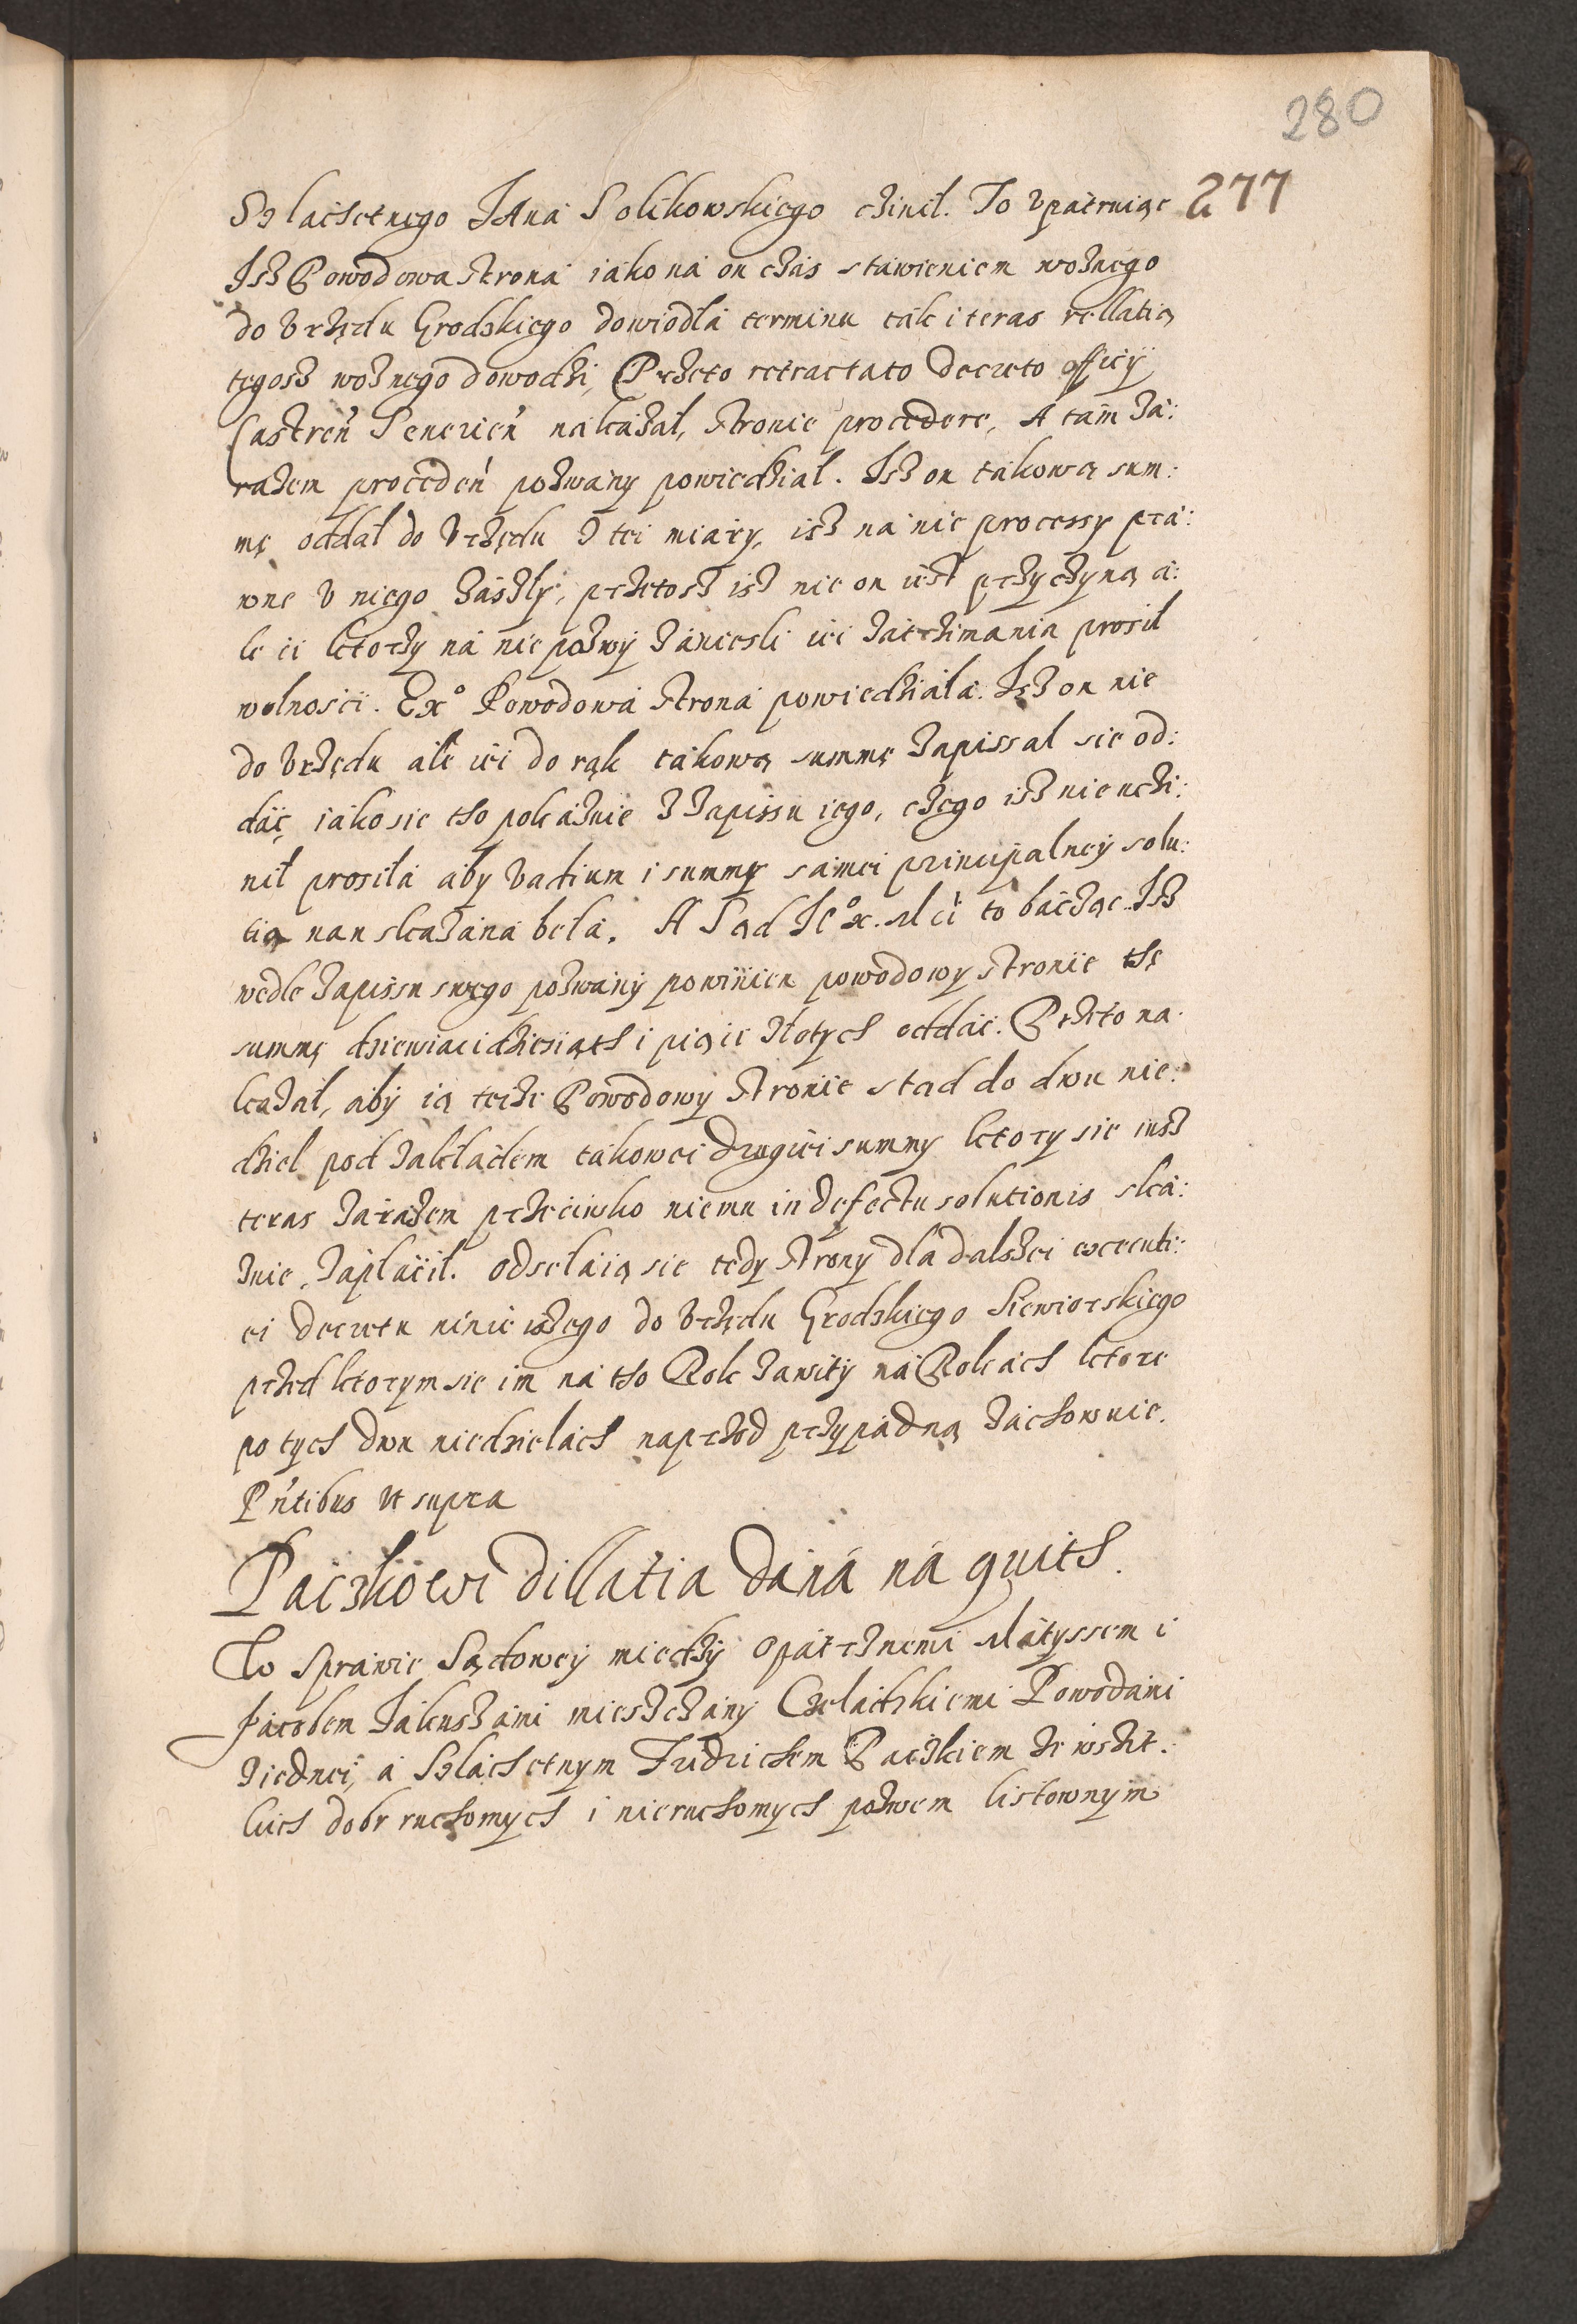 280
Szlachetnego JAna Solikowskiego czinił. To vpatruiąc 277
Jsz Powodowa strona iako na on czas stawieniem woznego
do Vrzędu Grodzkiego dowiodła terminu tak i teras rellatią
tegosz woznego dowodzi, Przeto retractato decreto officÿ
Castren̄ Seuerien̄ nakazał, stronie procedere, A tam za:
razem proceden̄ pozwany powiedział. Jsz on takową sum:
mę oddał do Vrzędu z tei miary, isz na nie processy pra:
wne v niego zászły, przetosz isz nie on iest przyczyną a:
le ci ktorzy ná nie pozwy zaniesli iei zatrzimania prosił
wolnosci. Exº Powodowa strona powiedziała. Jsz on nie
do Vrzędu ale iei do rąk takową summę zapissal sie od:
dać, iako sie tho pokaznie z zapissu iego, czego isz nie uczi:
nił prosiła aby vadium i summy samei principalney solu:
tią nan skazana beła. A Sąd Jº x. Mći to bacząc Jsz
wedle zapissu swego pozwany powinien powodowy stronie thę
summę dziewiacidziesiąth i pięc złotych oddać. Przeto na:
kazał, aby ią teize Powodowy stronie stad do dwu nie:
dziel pod zakładem takowei drugiei summy ktory sie iusz
teras zarazem przeciwko niemu in defectu solutionis ska:
zuie, zapłacił. Odsełaią sie tedy strony dla dalszei executi:
ei decretu ninieiszego do Vrzędu Grodzkiego Siewiorskiego
przed ktorym sie im na tho Rok zawity na Rokach ktore
po tych dwu niedzielach naprzod przypadną zachownie.
Pn̄tibus vt supra
Paczkowi dillatia dana ná quith.
W Sprawie Sądowey miedzy Opatrznemi Matyssem i
Jacobem Jakuszami mieszczany Czeladzkiemi Powodami
z iednei, a Szlachetnym Fridrichem Paczkiem ze wszit:
kich dobr ruchomych i nieruchomych pozwem listownym